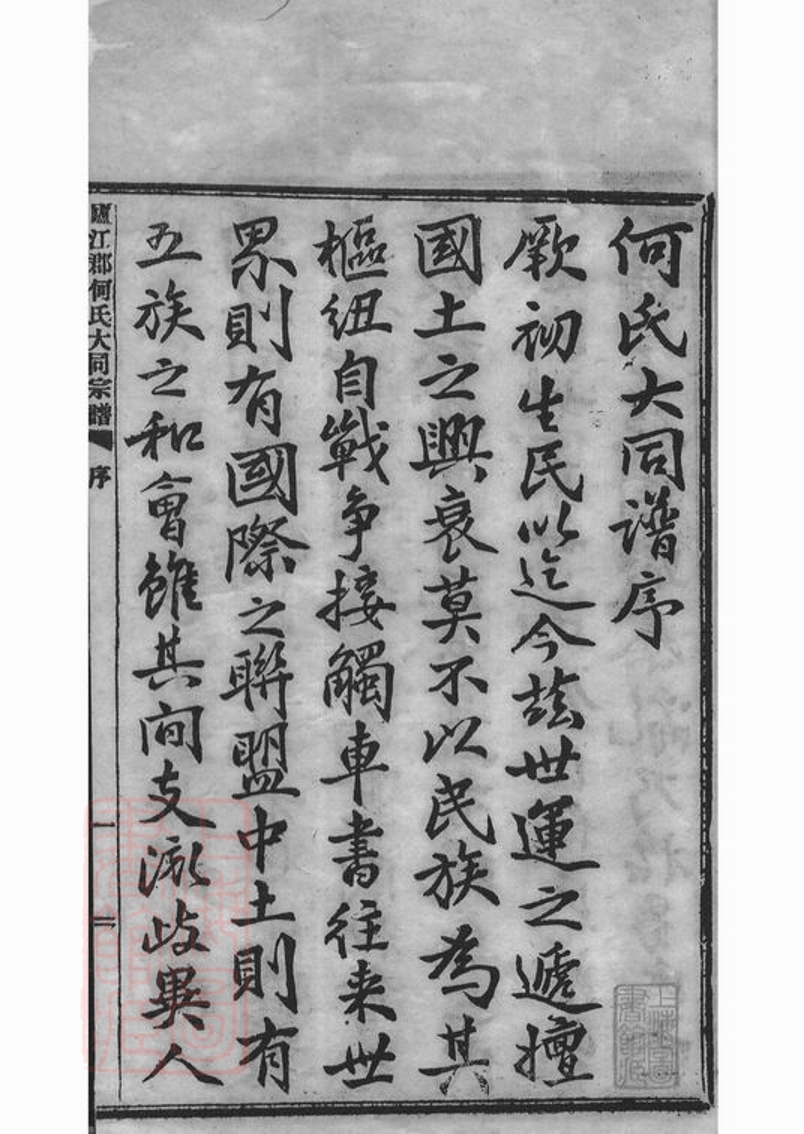 何氏大同譜序
厥初生民以迄今茲世運之遞擅
國土之興衰莫不以民族為其
樞紐自戰爭接觸車書往來世
界則有國際之聯盟中土則有
五族之和會雖其間支派歧異人
廬江郡何氏大同宗譜 序 一
上海圖書館藏